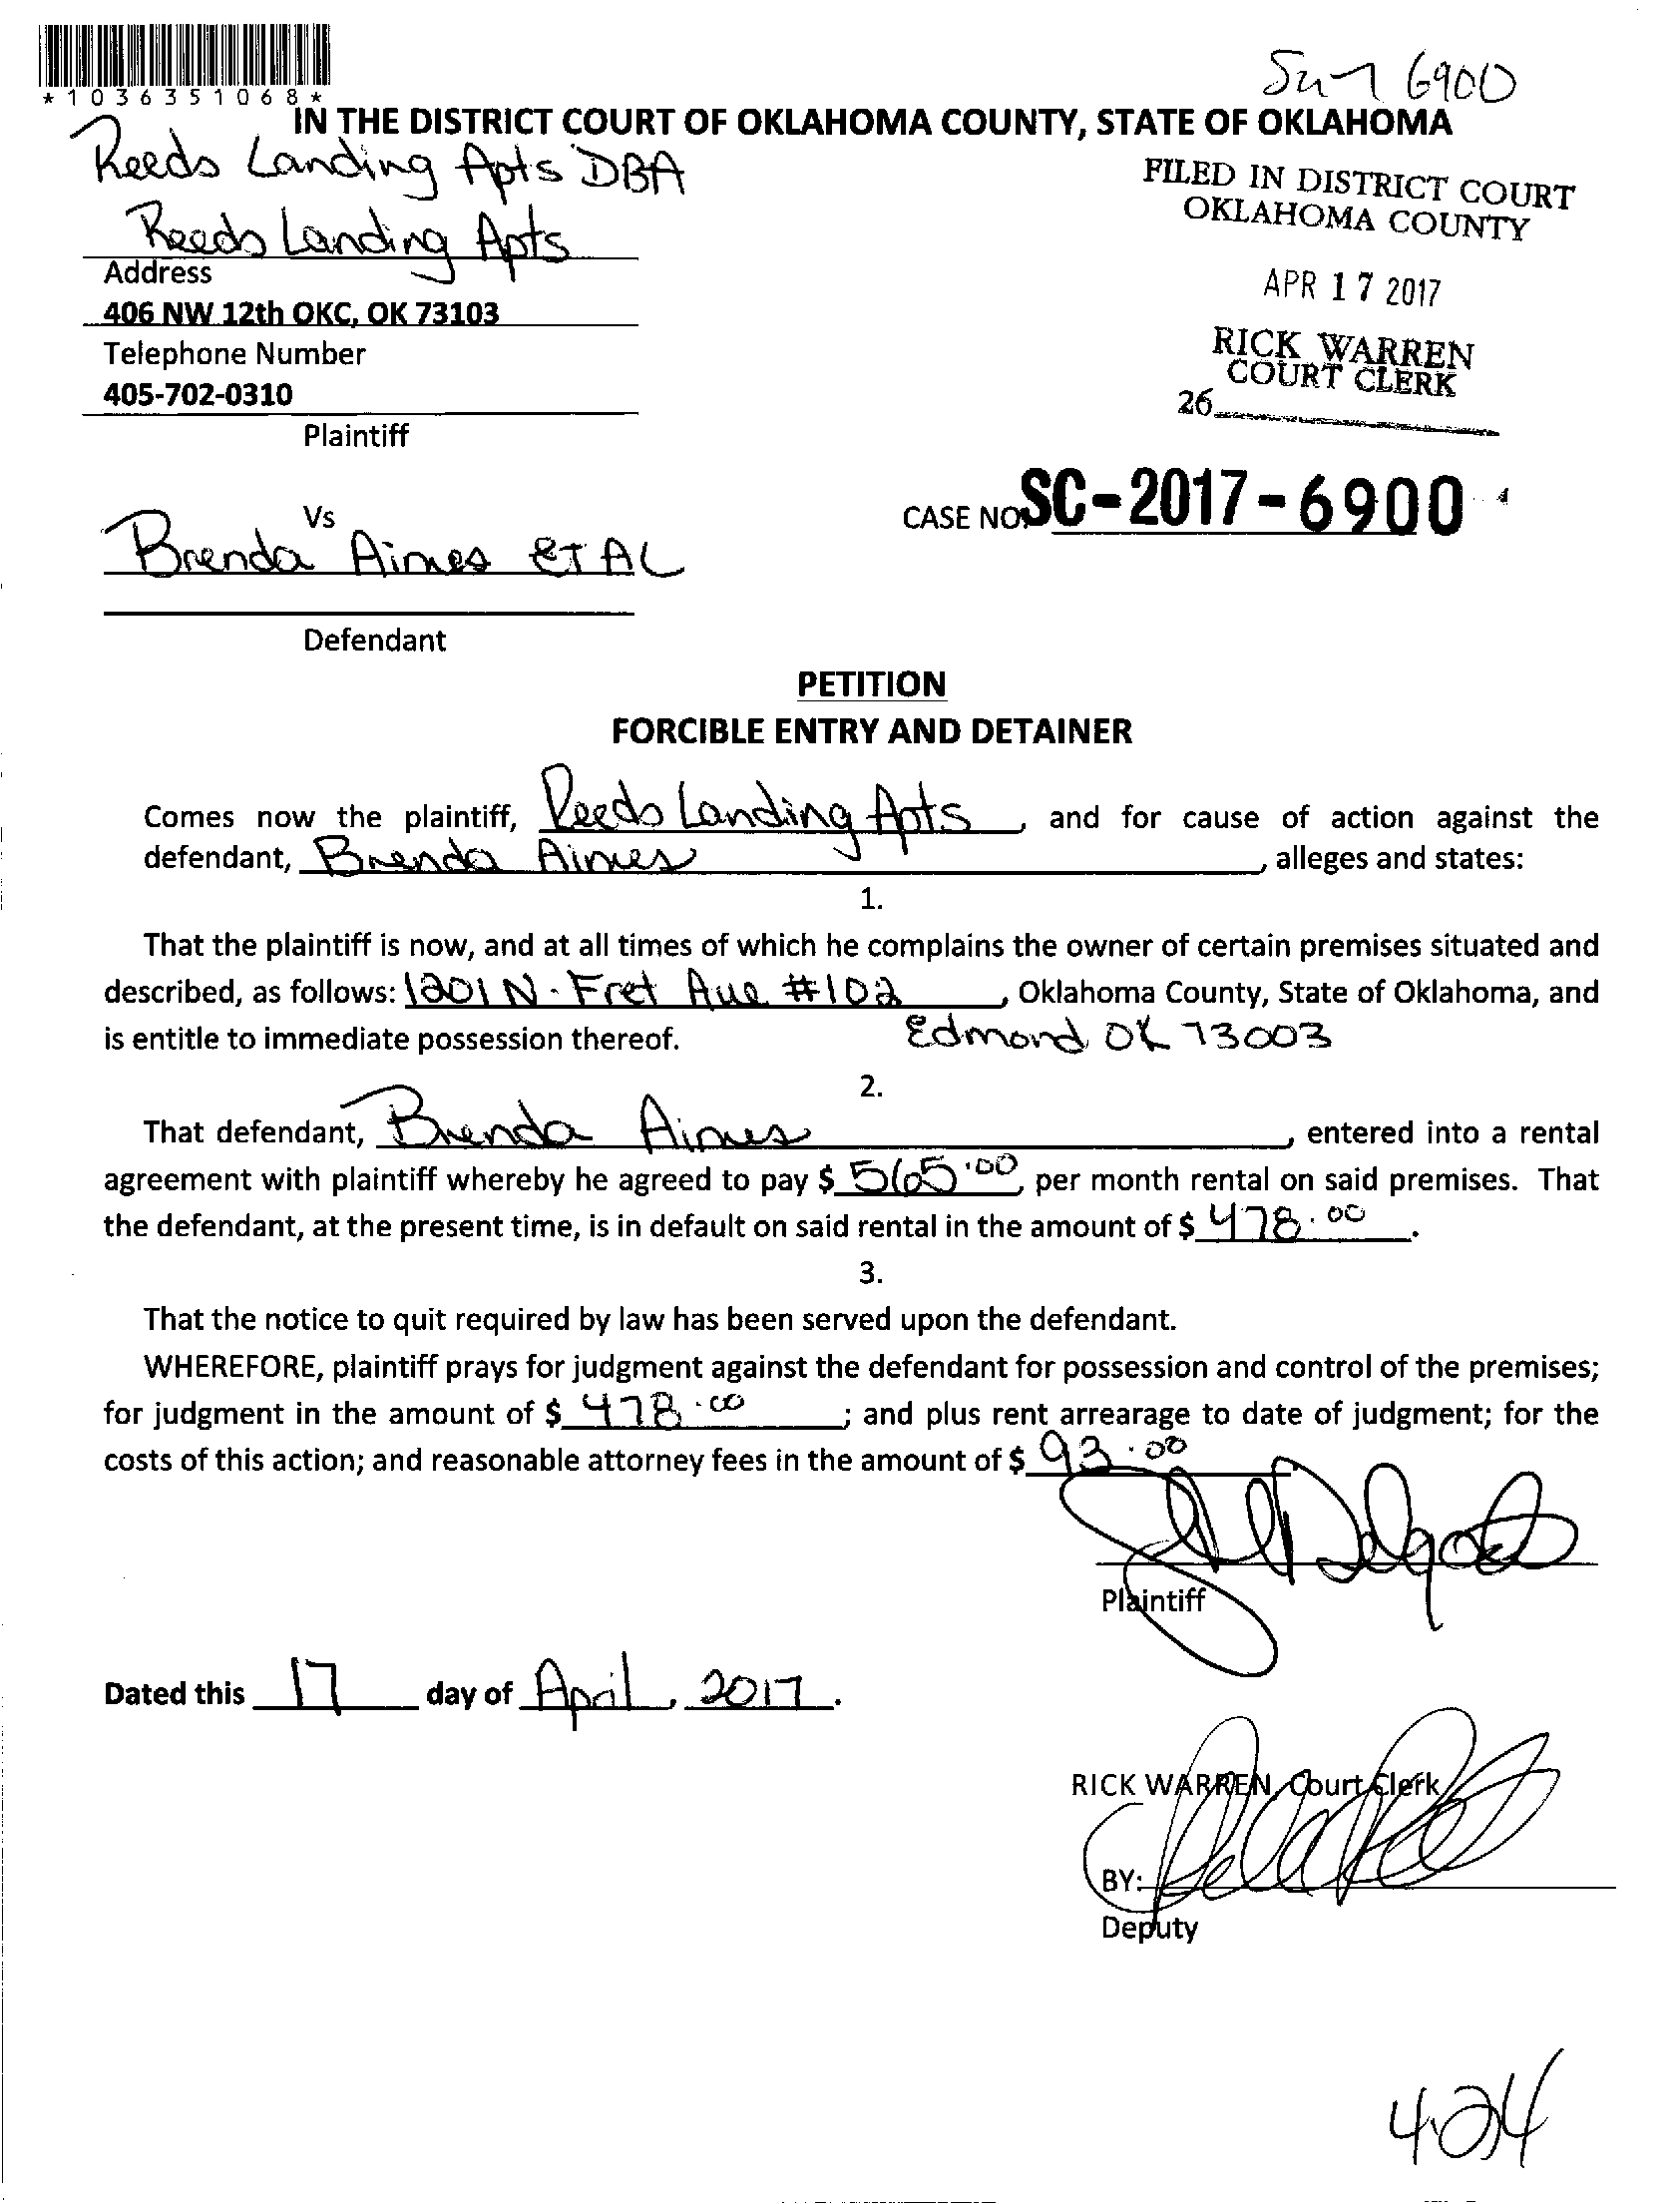 *1036351068*
6900
IN THE DISTRICT COURT OF OKLAHOMA COUNTY, STATE OF OKLAHOMA
Reeds Landing Apts DBA
Reeds Landing Apts
Address
406 NW 12th OKC, OK 73103
Telephone Number
405-702-0310
Plaintiff
FILED IN DISTRICT COURT
OKLAHOMA COUNTY
APR 17 2017
RICK WARREN
COURT CLERK
26
Vs
Brenda Aimes ET AL
Defendant
CASE NO. SC-2017-6900
PETITION
FORCIBLE ENTRY AND DETAINER
Comes now the plaintiff, Reeds Landing Apts, and for cause of action against the
defendant, Brenda Aimes, alleges and states:
1.
That the plaintiff is now, and at all times of which he complains the owner of certain premises situated and
described, as follows: 1201 N. Fret Ave #102, Oklahoma County, State of Oklahoma, and
is entitle to immediate possession thereof. Edmond OK 73003
2.
That defendant, Brenda Aimes, entered into a rental
agreement with plaintiff whereby he agreed to pay $ 565.00, per month rental on said premises. That
the defendant, at the present time, is in default on said rental in the amount of $ 478.00.
3.
That the notice to quit required by law has been served upon the defendant.
WHEREFORE, plaintiff prays for judgment against the defendant for possession and control of the premises;
for judgment in the amount of $ 478.00; and plus rent arrearage to date of judgment; for the
costs of this action; and reasonable attorney fees in the amount of $ 93.00
Plaintiff
Dated this 17 day of April, 2017.
RICK WARREN, Court Clerk
BY:
Deputy
4.24